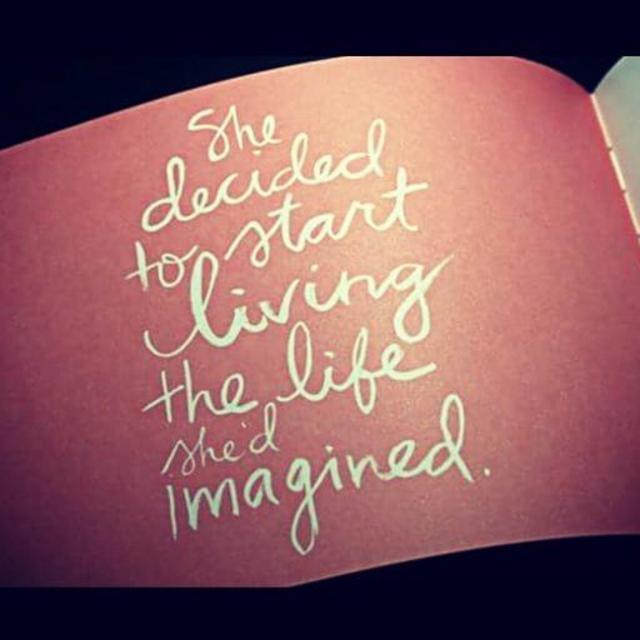 She
decided
to start
living
the life
she'd
imagined.